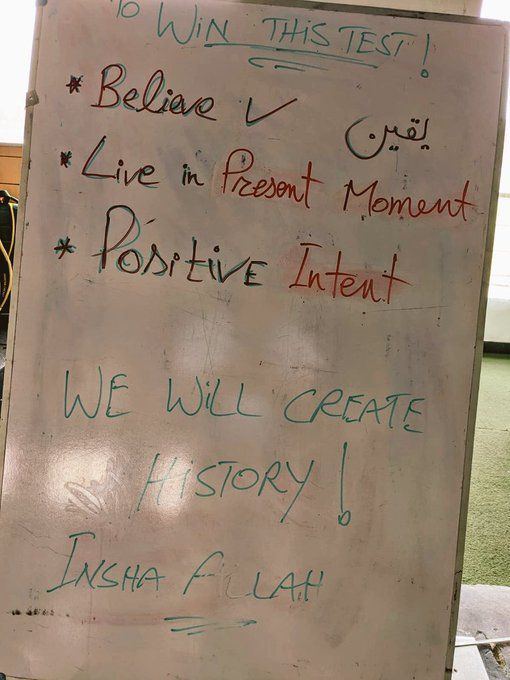 To WIN THIS TEST!
* Believe ✓ يقين
* Live in Present Moment
* Positive Intent
WE WILL CREATE
HISTORY!
INSHA ALLAH